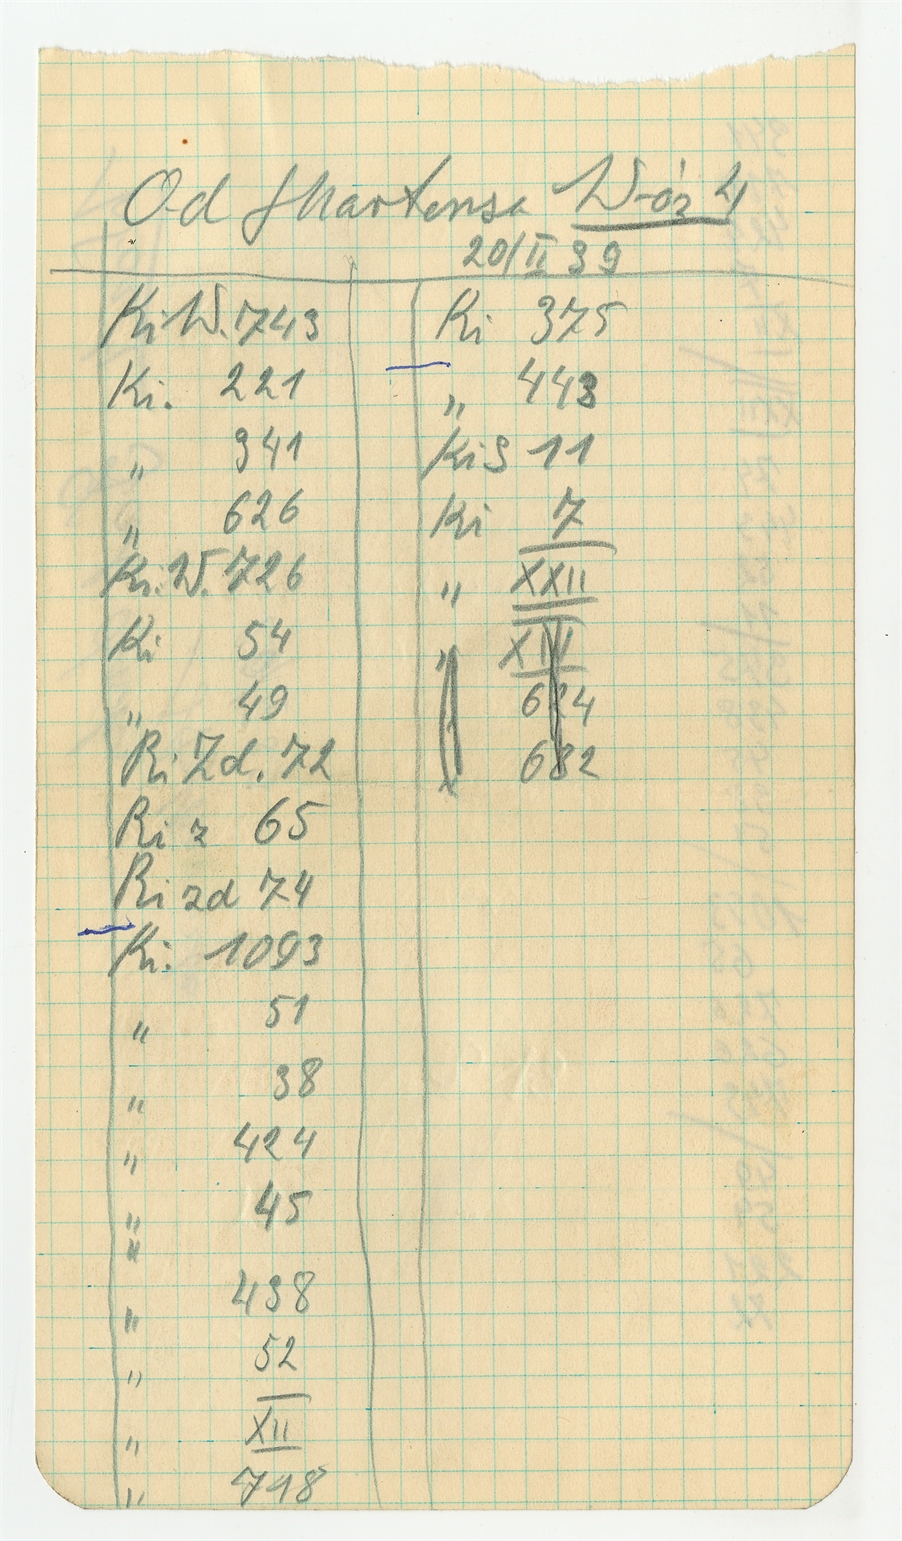 Od J Martensa W-óz 4
20/II 39
Ki W. 743
Ki. 221
" 341
" 626
Ki. W. 726
Ki 54
" 49
Ri Zd. 72
Ri z 65
Ri zd 74
Ki. 1093
" 51
" 38
" 424
" 45
"
" 438
" 52
" XII
" 718
Ri 375
" 443
Ki S 11
Ki 7
" XXII
" XIII
624
682